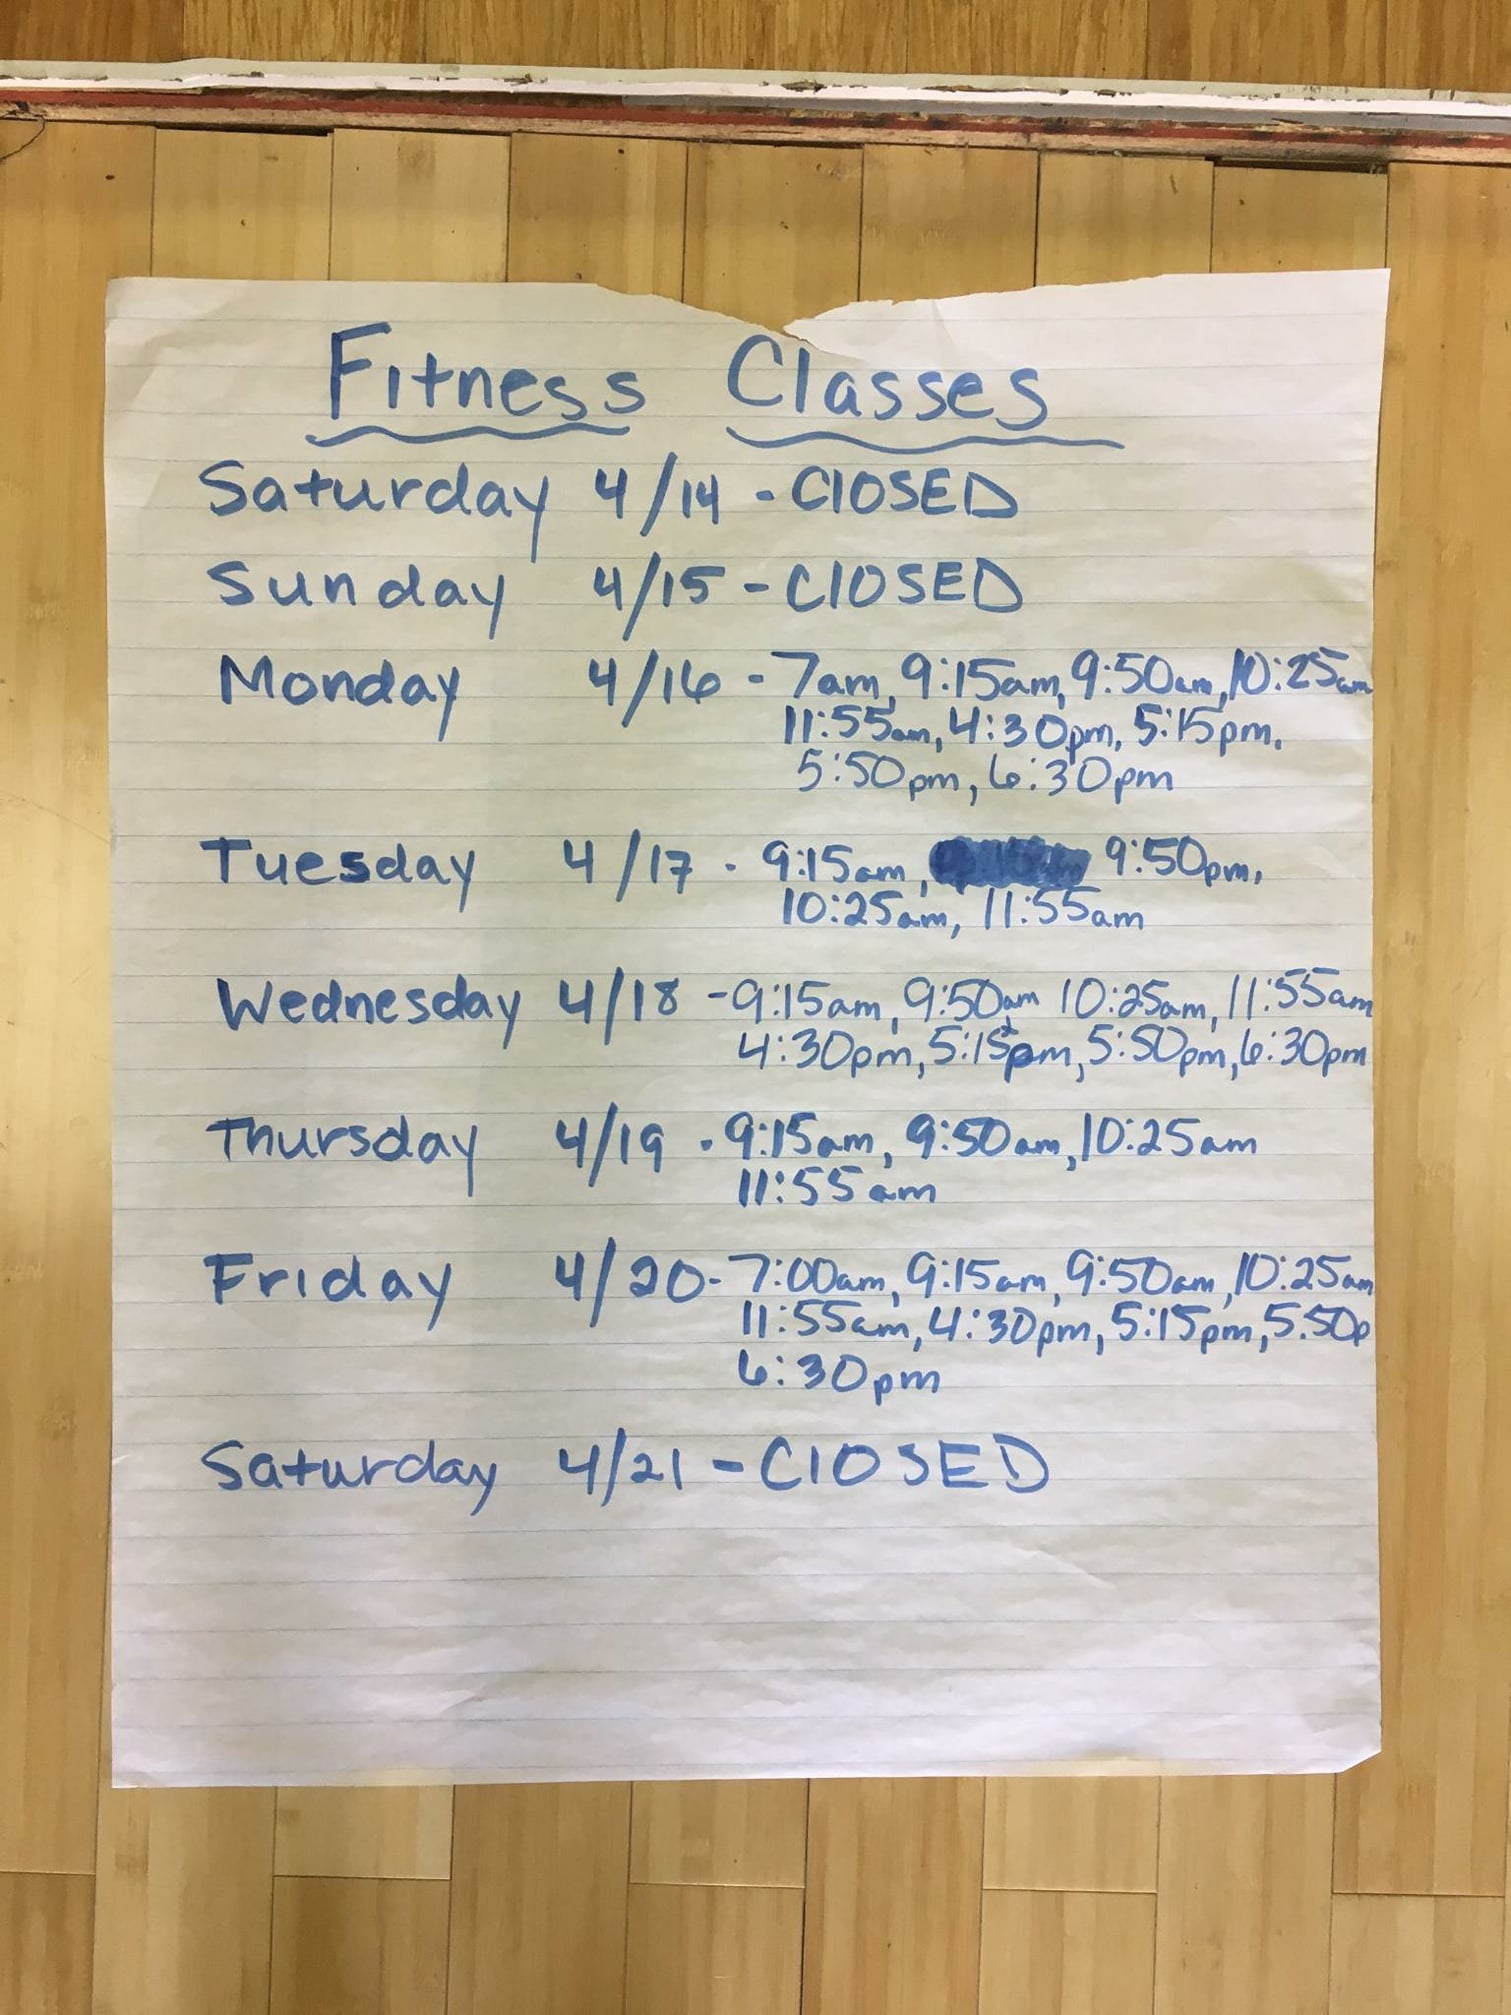 Fitness Classes
Saturday 4/14 - ClOSED
Sunday 4/15 - ClOSED
Monday 4/16 - 7am, 9:15am, 9:50am, 10:25am
11:55am, 4:30pm, 5:15pm,
5:50pm, 6:30pm
Tuesday 4/17 - 9:15am, 9:50pm,
10:25am, 11:55am
Wednesday 4/18 - 9:15am, 9:50am 10:25am, 11:55am
4:30pm, 5:15pm, 5:50pm, 6:30pm
Thursday 4/19 - 9:15am, 9:50am, 10:25am
11:55am
Friday 4/20 - 7:00am, 9:15am, 9:50am, 10:25am
11:55am, 4:30pm, 5:15pm, 5:50p
6:30pm
Saturday 4/21 - ClOSED